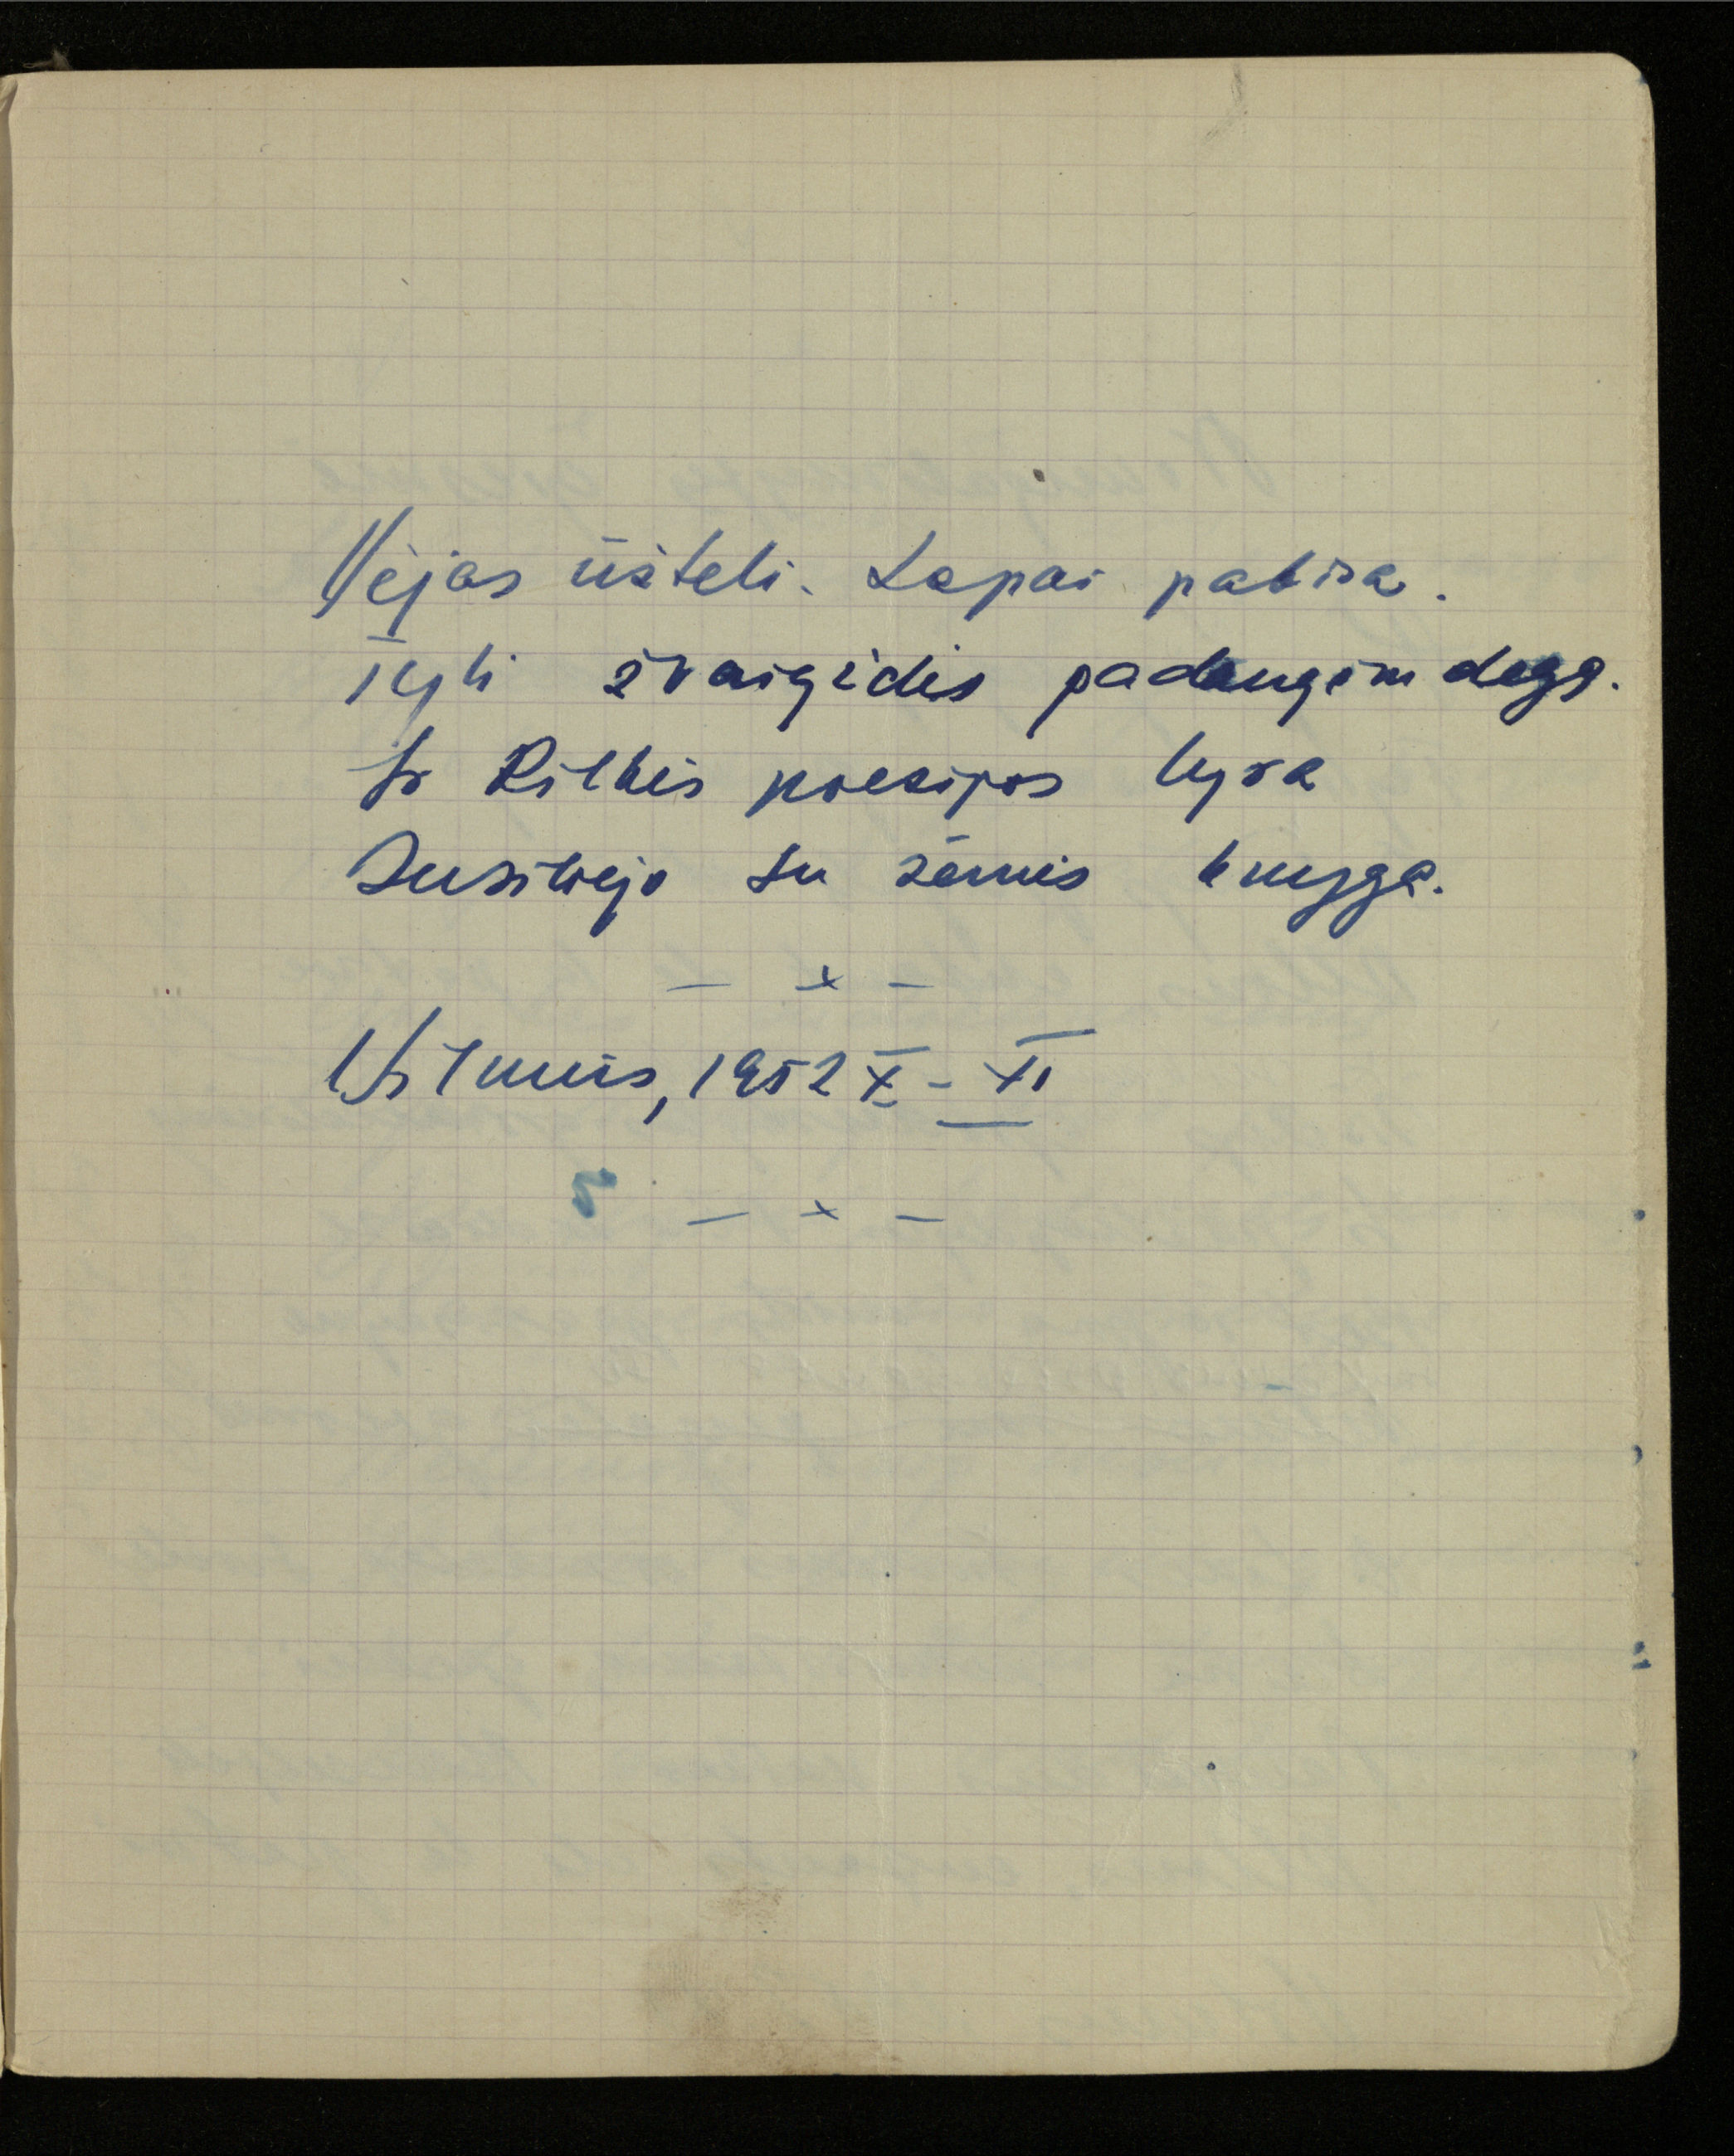 Vėjas ūžteli. Lapai pabira.
Tyli žvaigždės padangėm dega.
Ir Rilkės poezijos lyra
Susiliejo su žemės knyga.
— x —
Vilnius, 1952 X - XI
— x —